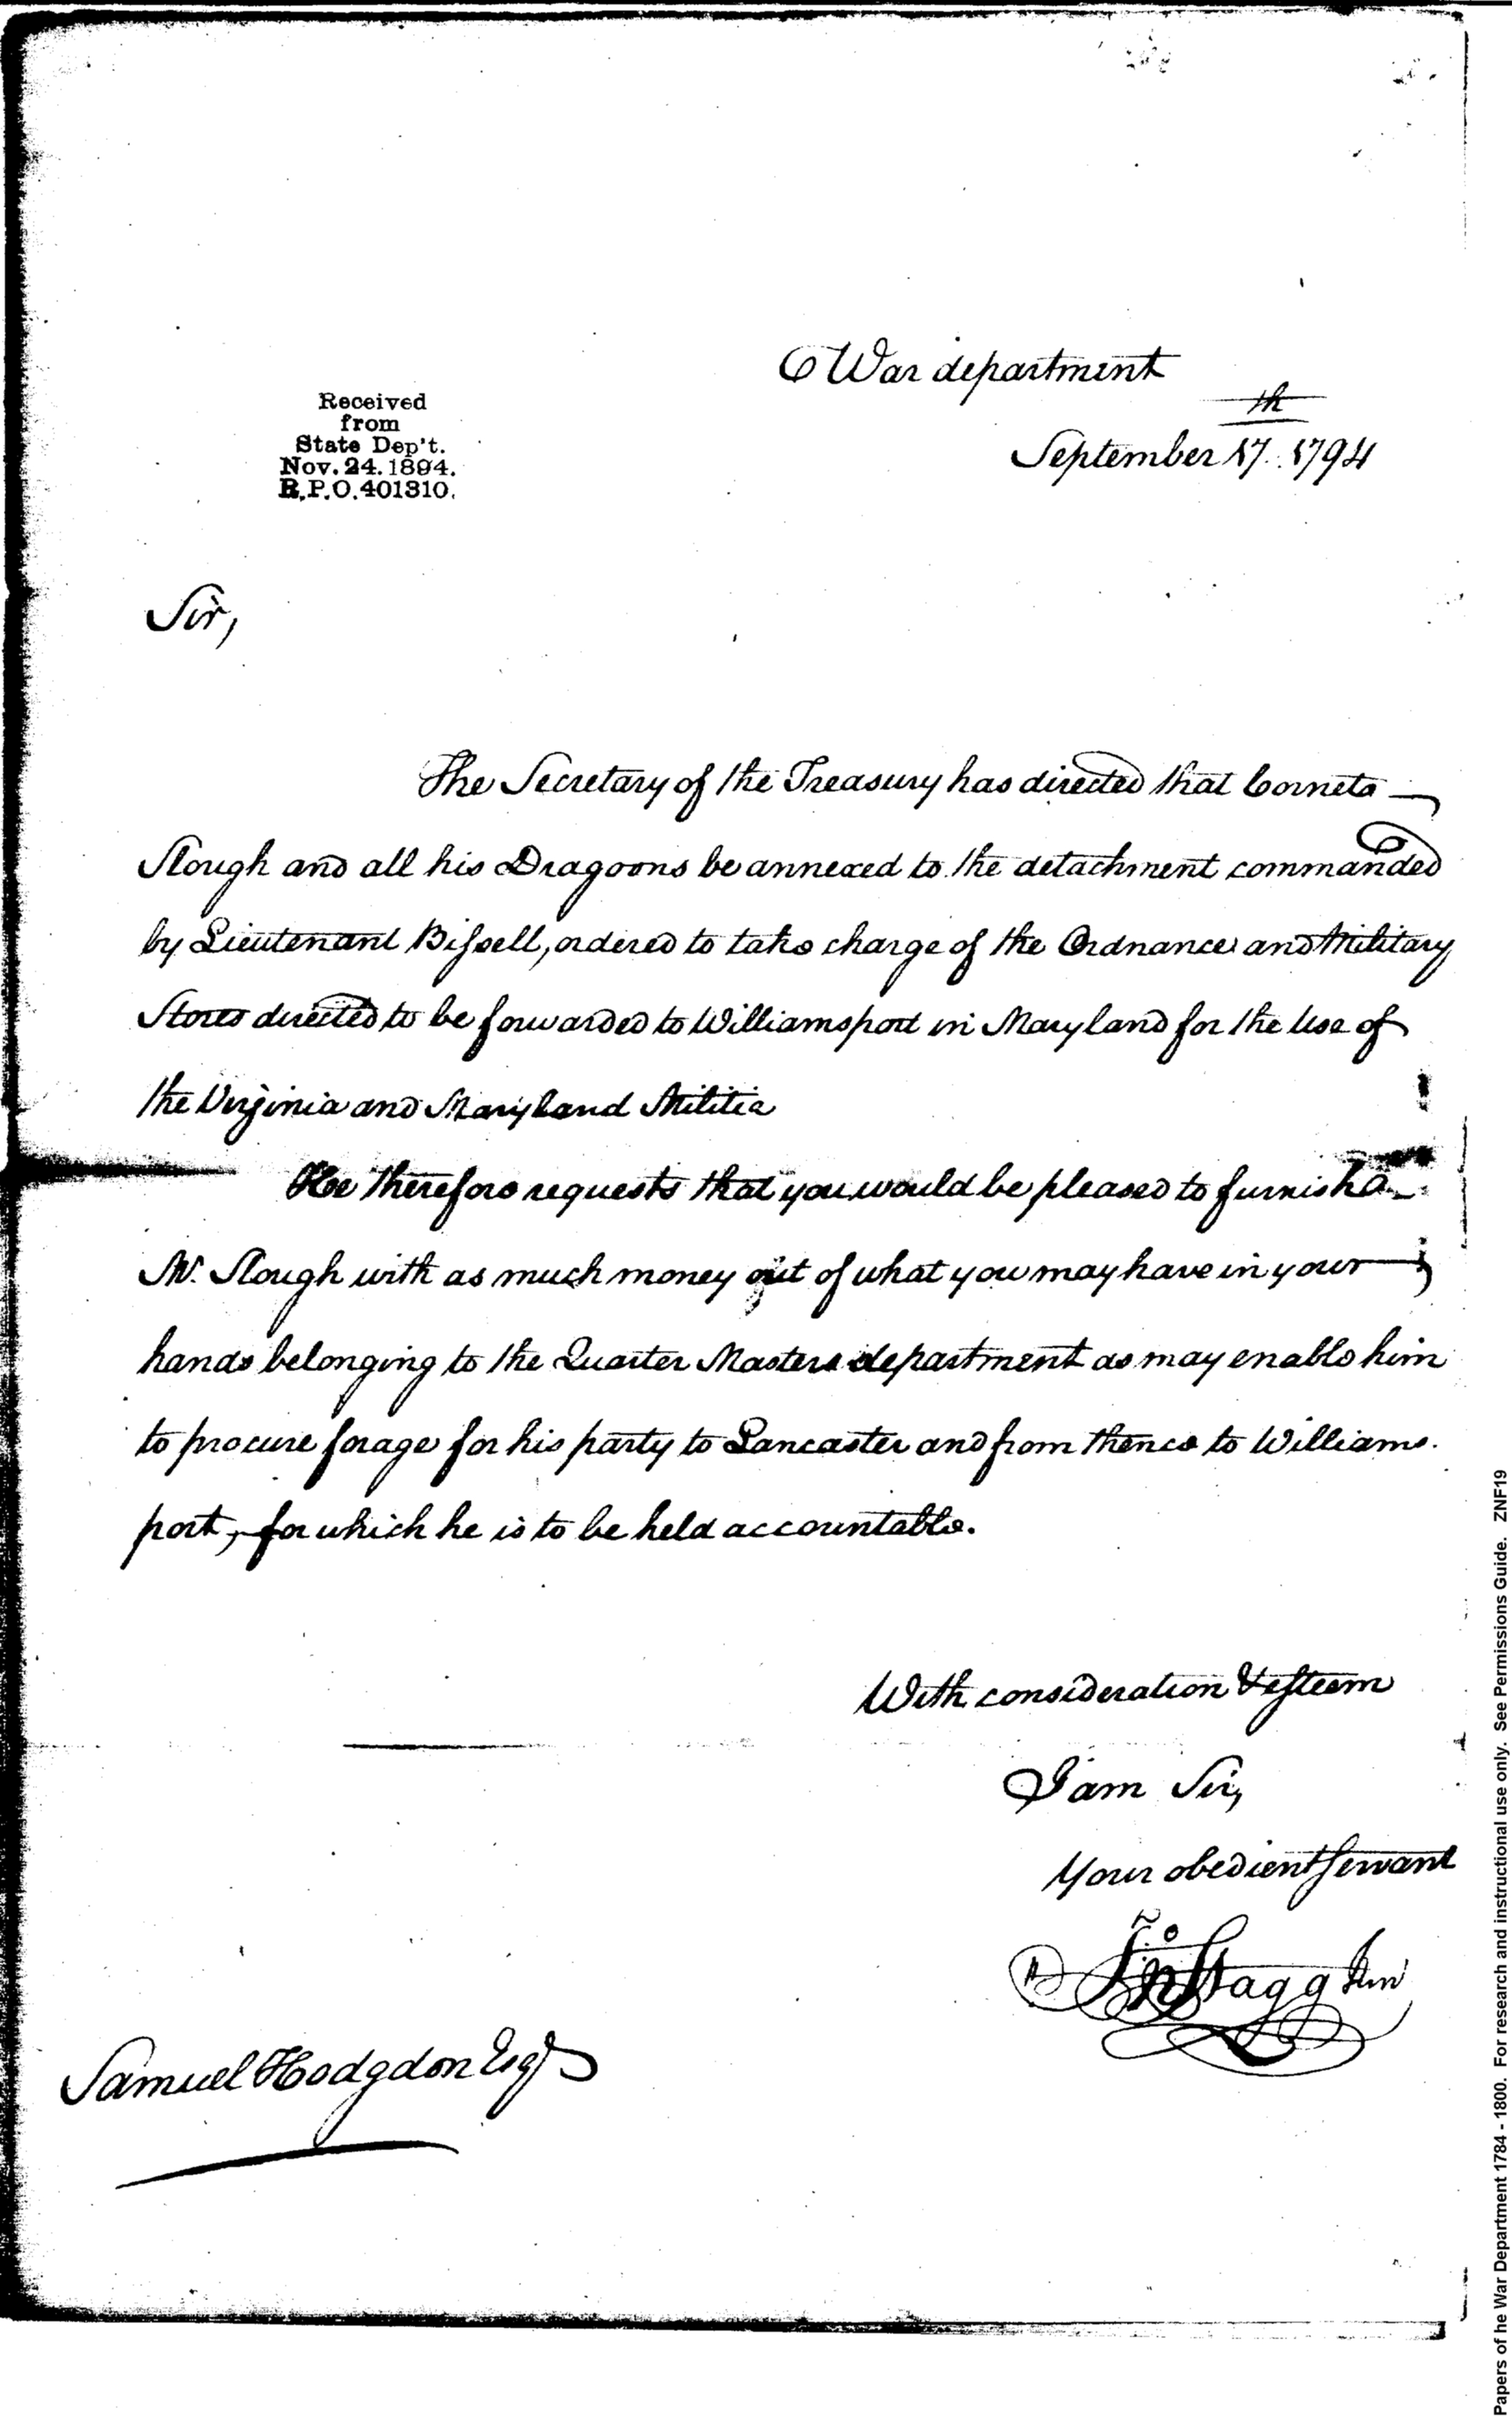 War department
September 17th 1794
Received
from
State Dep't.
Nov. 24. 1894.
R.P.O. 401310.
Sir,
The Secretary of the Treasury has directed that Cornets
Slough and all his Dragoons be annexed to the detachment commanded
by Lieutenant Bissell, ordered to take charge of the Ordnance and Military
Stores directed to be forwarded to Williamsport in Maryland for the Use of
the Virginia and Maryland Militia
He therefore requests that you would be pleased to furnish
Mr. Slough with as much money out of what you may have in your
hands belonging to the Quarter Masters department as may enable him
to procure forage for his party to Lancaster and from thence to Williams-
port, for which he is to be held accountable.
With consideration & esteem
I am Sir,
Your obedient Servant
Jno Stagg Junr
Samuel Hodgdon Esqr
Papers of he War Department 1784 - 1800. For research and instructional use only. See Permissions Guide. ZNF19